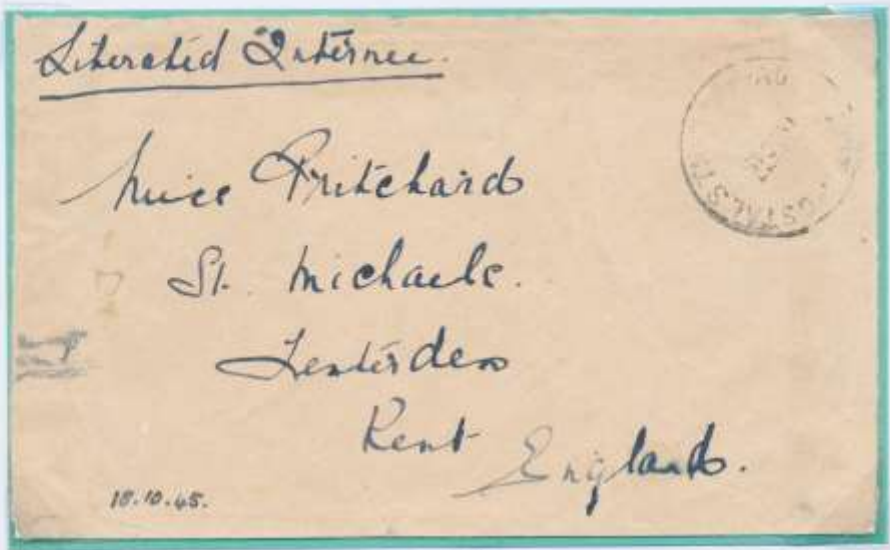 Liberated Internee.
Miss Pritchard
St. Michaels.
Tenterden
Kent England.
18.10.45.
POSTAL STN